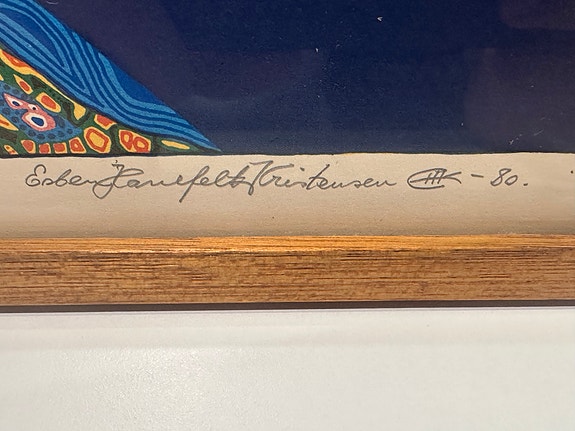 Esben Hanefelt Kristensen EHK - 80.